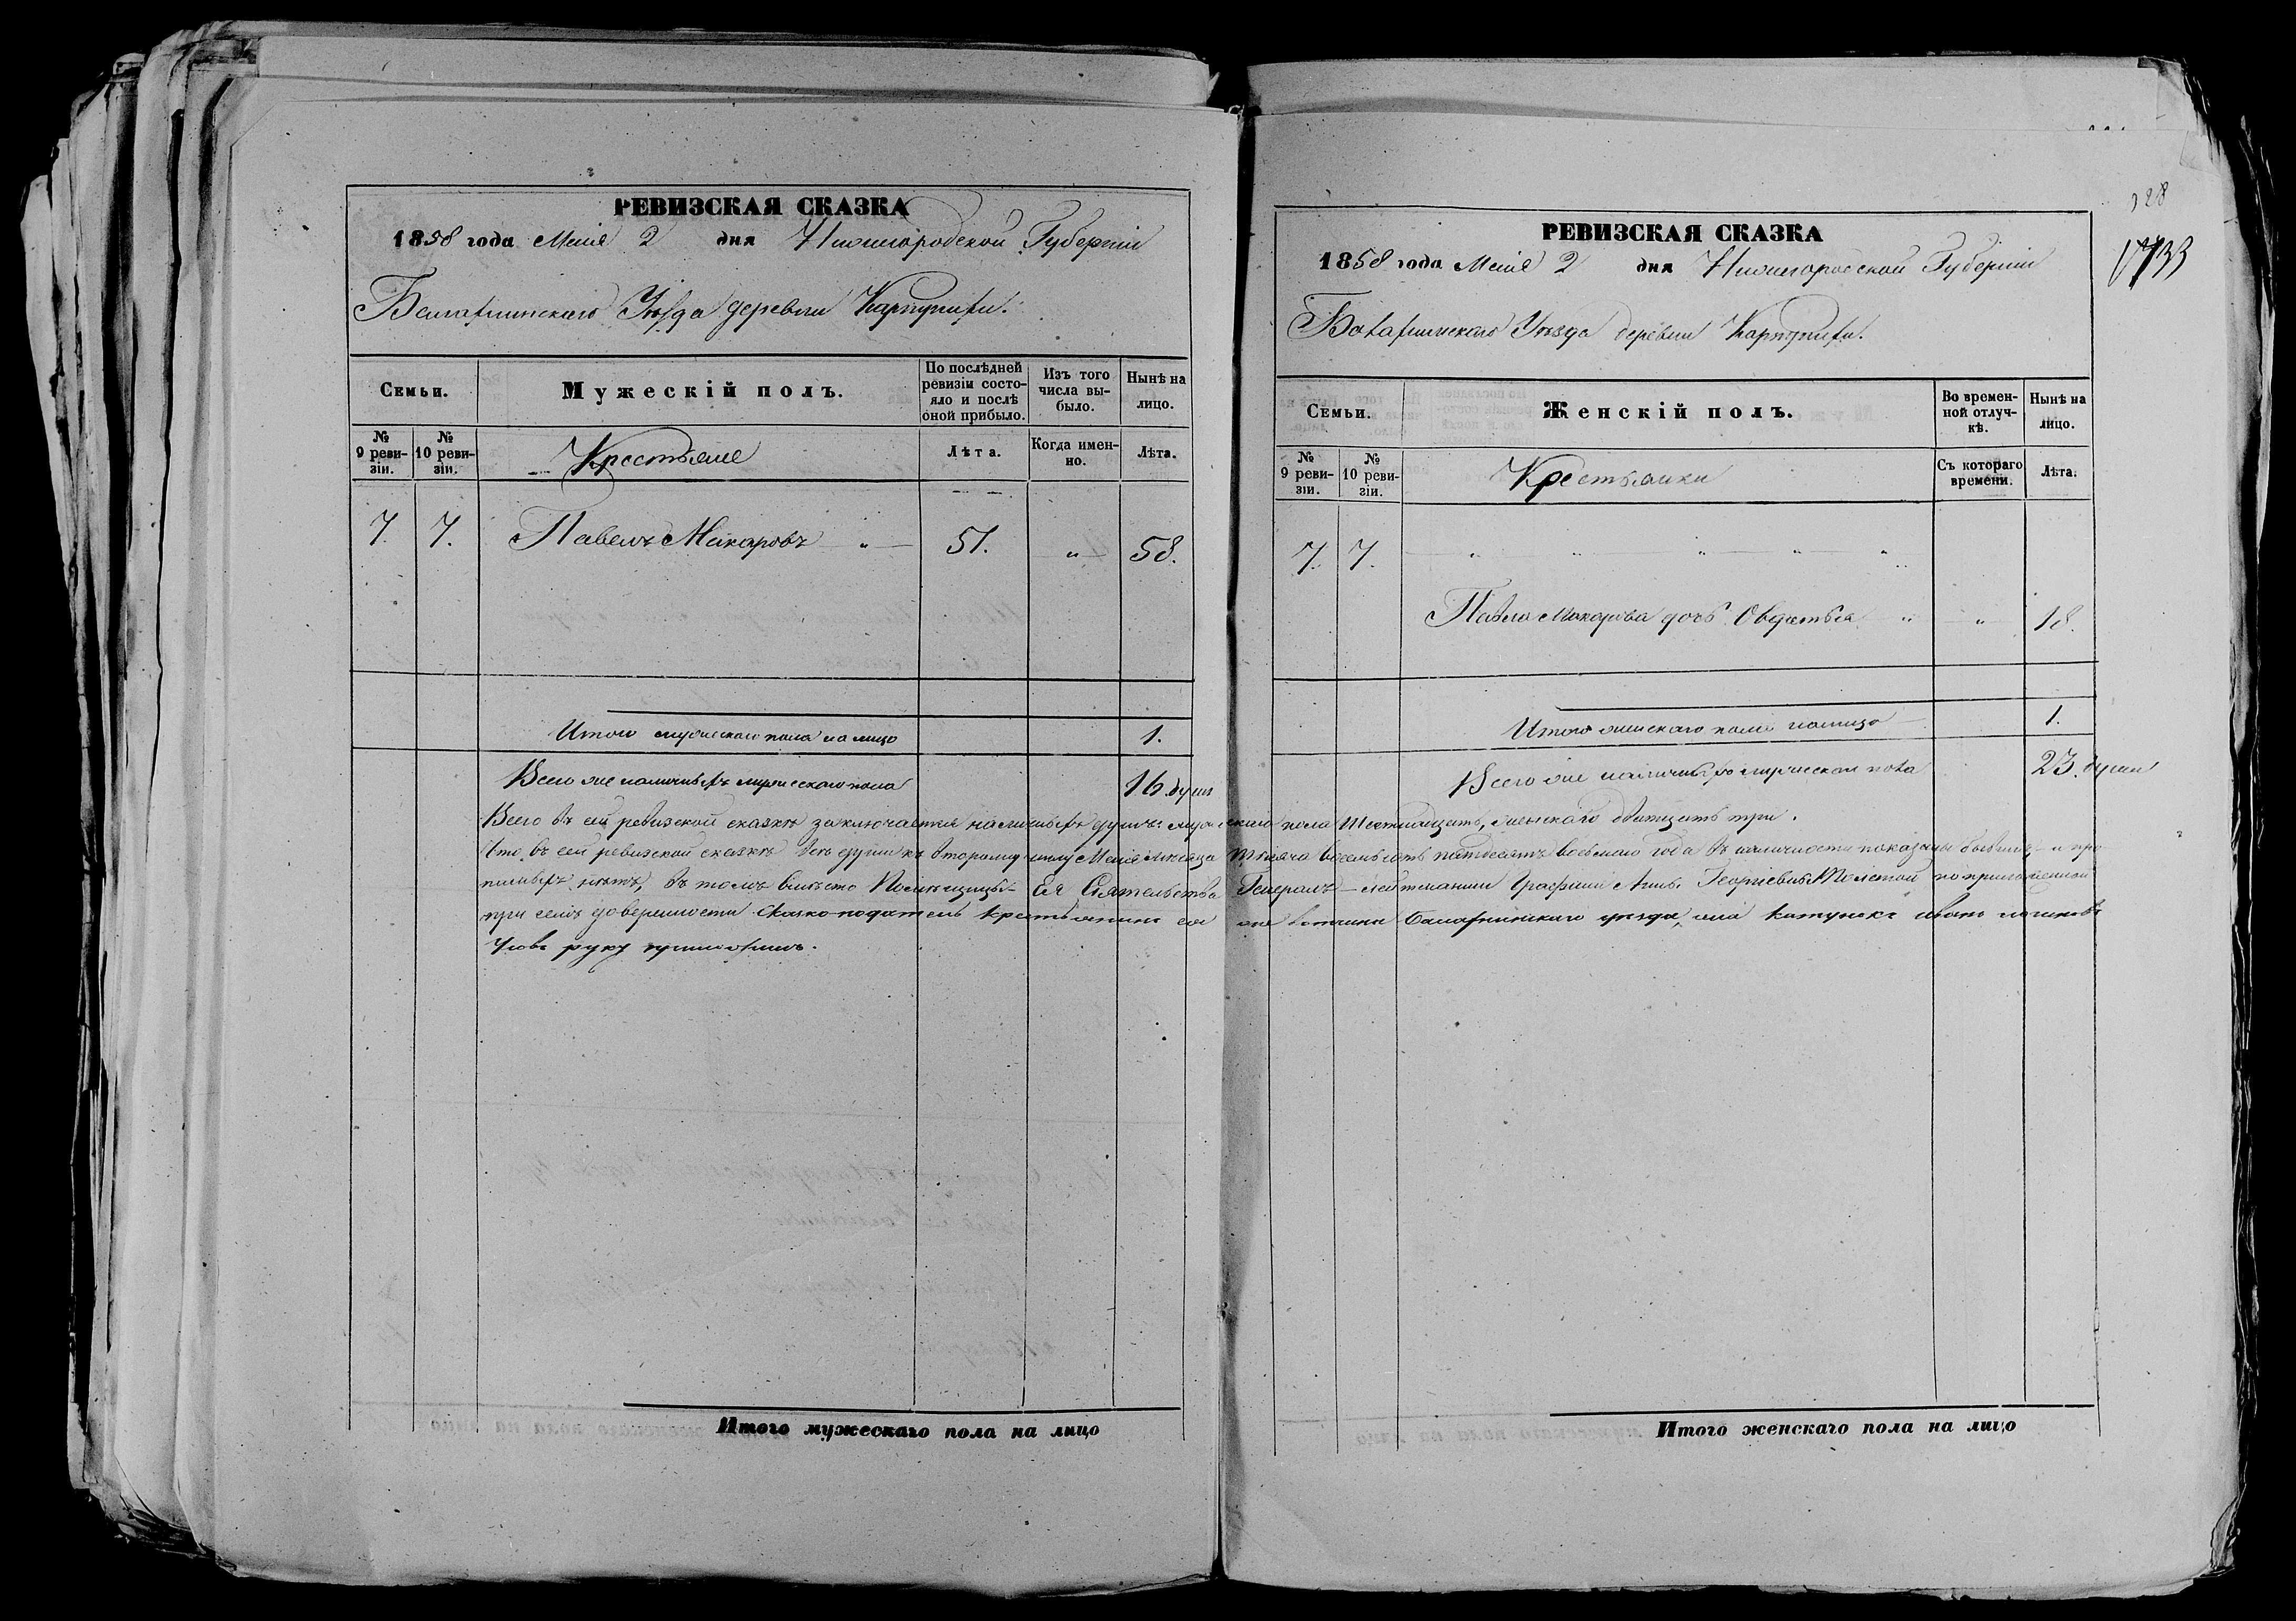 РЕВИЗСКАЯ СКАЗКА
1858 года Маія 2 дня Нижегородской Губерніи
Балахнинскаго Уѣзда деревни
Семьи.
Мужескій полъ.
По послѣдней ревизіи состояло и послѣ оной прибыло.
Изъ того числа выбыло.
Нынѣ на лицо.
№ 9 ревизіи.
№ 10 ревизіи.
Крестьяне
Лѣта.
Когда именно.
Лѣта.
7. 7. Павелъ Макаровъ " 51. " 58.
Итого мужескаго пола на лицо 1.
Всего же наличныхъ мужескаго пола 16. душъ
РЕВИЗСКАЯ СКАЗКА
1858 года Маія 2 дня Нижегородской Губерніи
Балахнинскаго Уѣзда деревни
Семьи.
Женскій полъ.
Во временной отлучкѣ.
Нынѣ на лицо.
№ 9 ревизіи.
№ 10 ревизіи.
Крестьянки
Съ котораго времени.
Лѣта.
7. 7. " " " " "
Павла Макарова дочь Овдотья " " 18.
Итого женскаго пола налицо 1.
Всего же наличныхъ 23. души
Всего въ сей ревизской сказкѣ заключается наличныхъ душъ: мужескаго пола Шестнадцать, женскаго двадцать три.
Что въ сей ревизской сказкѣ всѣ души къ второму числу Маія мѣсяца Тысяча восемьсотъ пятьдесятъ восьмаго года въ наличности показаны и про
нѣтъ, въ томъ вмѣсто Помѣщицы Ея Сіятельства Генералъ-Лейтенанши Графини Анны Георгіевны Толстой по приложенной
при семъ довѣренности сказкоподатель крестьянинъ ея же вотчины Балахнинскаго уѣзда, села Катунокъ иванъ
руку приложилъ.
Итого мужескаго пола на лицо
Итого женскаго пола на лицо